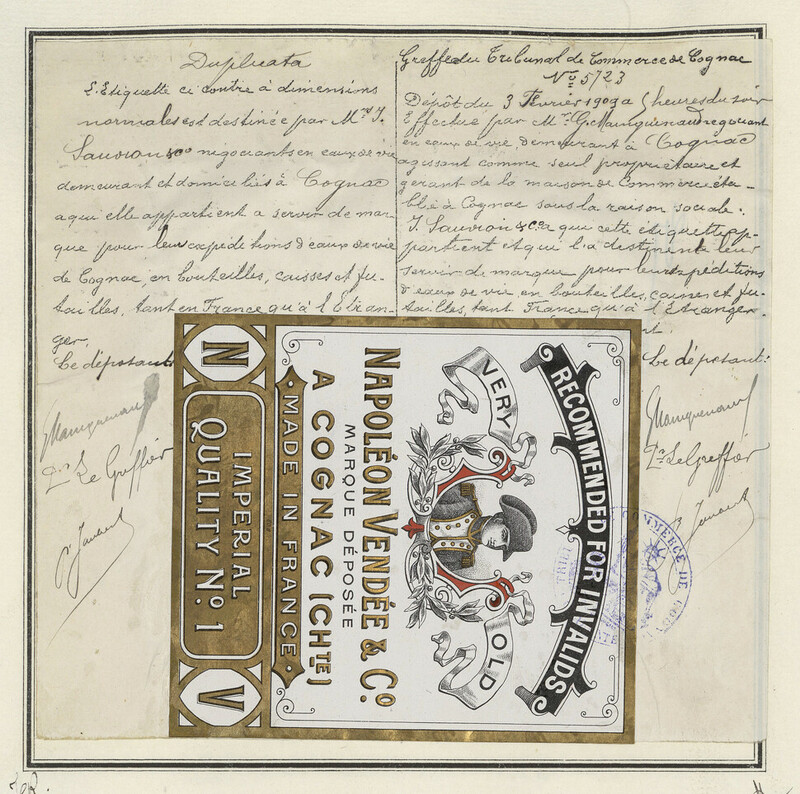 Duplicata
L'Etiquette ci contre à dimensions
normales est destinée par Mrs J.
Sauvion & Co négociants en eaux de vie
demeurant et domiciliés à Cognac
a qui elle appartient a servir de mar-
que pour leurs expéditions d'eaux de vie
de Cognac, en bouteilles, caisses et fu-
tailles, tant en France qu'à l'Etran-
ger.
Le déposant:
Le Greffier
Greffe du Tribunal de Commerce de Cognac
No 5723
Dépôt du 3 Février 1903 a 5 heures du soir
Effectué par Mr G. Mauguenaud négociant
en eaux de vie demeurant à Cognac
agissant comme seul propriétaire et
gérant de la maison de Commerce éta-
blie à Cognac sous la raison sociale:
J. Sauvion & Cie a que cette étiquette ap-
partient et qui l'a destine à leur
servir de marque pour leurs expéditions
d'eaux de vie en bouteilles, caisses et fu-
tailles, tant France qu'à l'Etranger.
Le déposant:
Le Greffier
RECOMMENDED FOR INVALIDS
VERY OLD
NAPOLÉON VENDÉE & Co.
MARQUE DÉPOSÉE
A COGNAC (CHTE)
MADE IN FRANCE
N IMPERIAL V
QUALITY No. 1
COMMERCE DE
TRIB